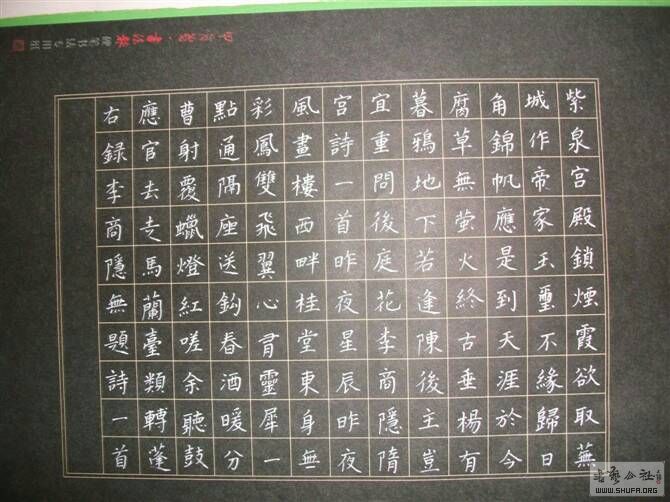 紫泉宮殿鎖煙霞欲取蕪
城作帝家玉璽不緣歸日
角錦帆應是到天涯於今
腐草無螢火終古垂楊有
暮鴉地下若逢陳後主豈
宜重問後庭花李商隱隋
宮詩一首昨夜星辰昨夜
風畫樓西畔桂堂東身無
彩鳳雙飛翼心有靈犀一
點通隔座送鉤春酒暖分
曹射覆蠟燈紅嗟余聽鼓
應官去走馬蘭臺類轉蓬
右錄李商隱無題詩一首
書法報
硬笔书法专用纸
WWW.SHUFA.ORG